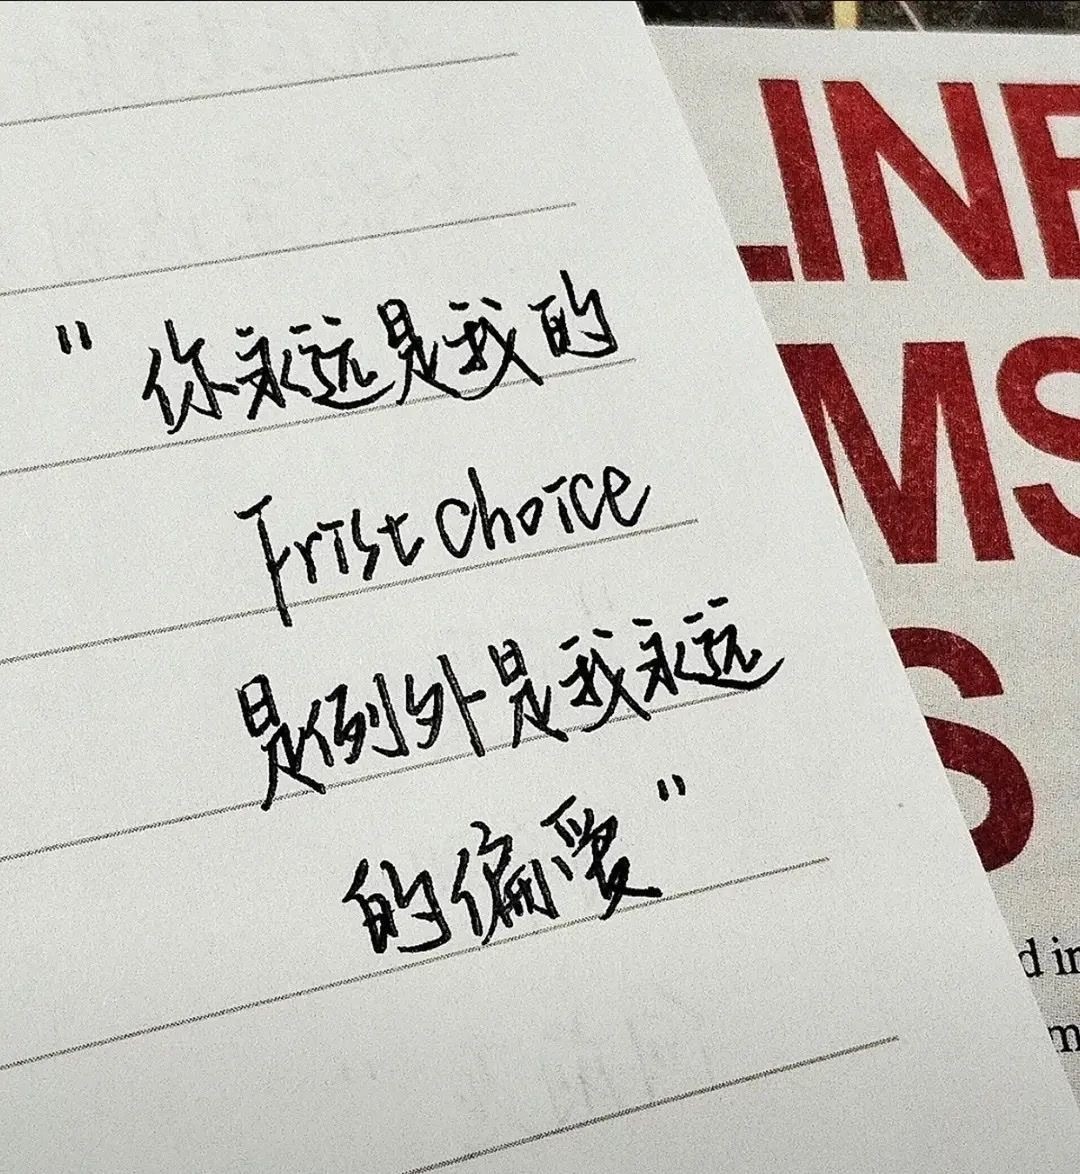 "你永远是我的
Frist choice
是例外是我永远
的偏爱"
LINE
MS
S
d in
m